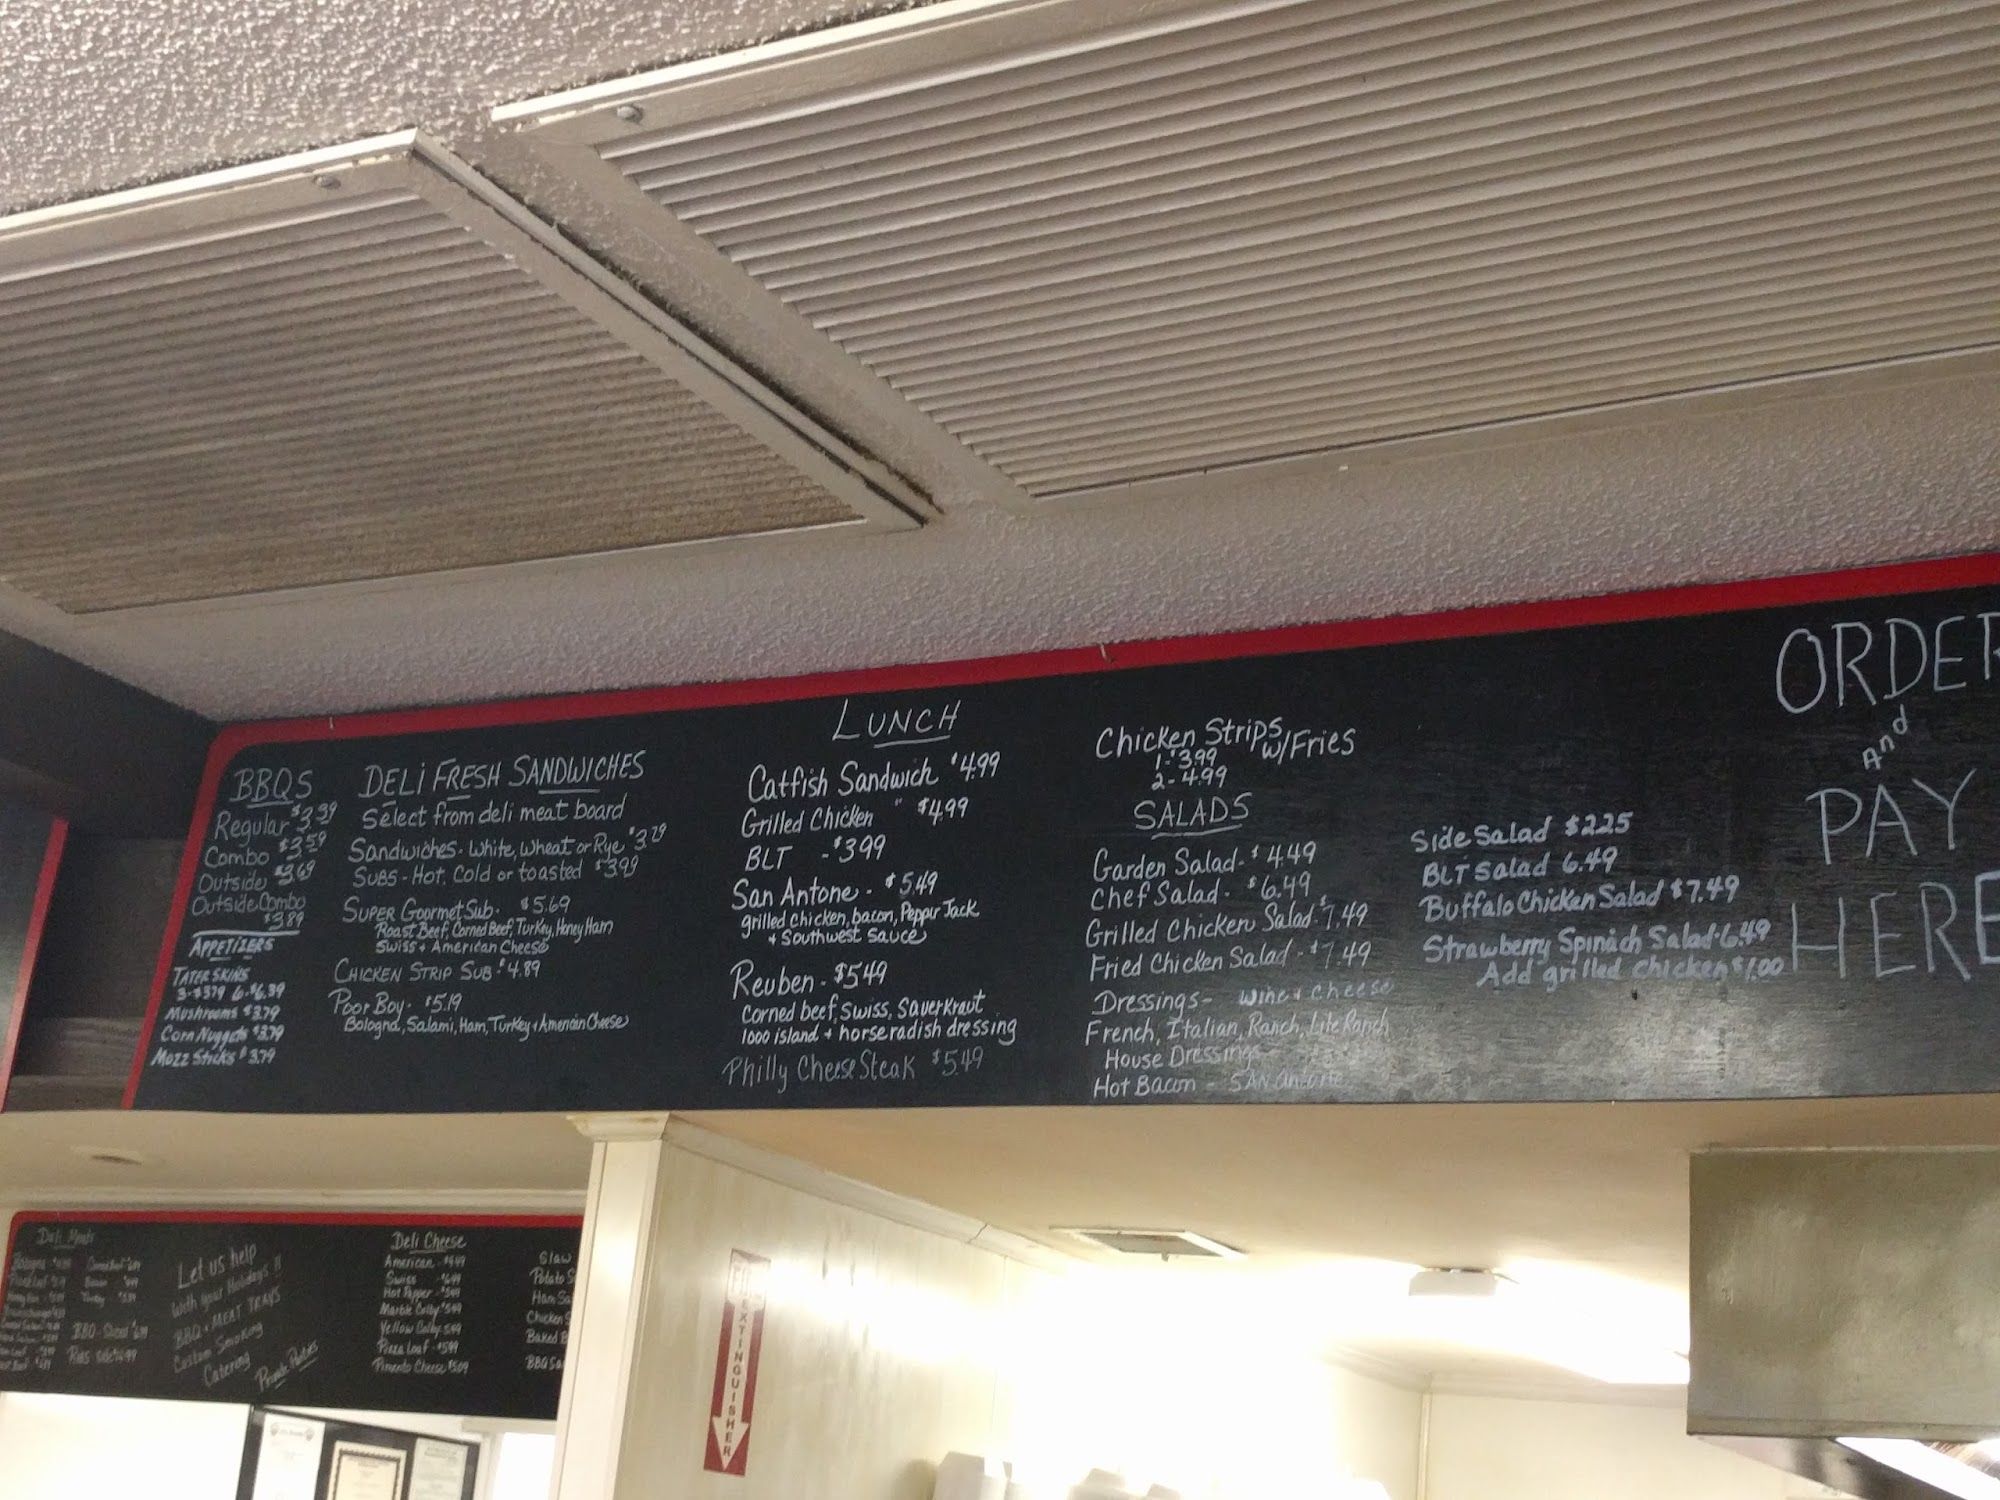 BBQS
Regular $3.39
Combo $3.59
Outside $3.69
Outside Combo
$3.89
APPETIZERS
TATER SKINS
3-$3.79 6-$6.39
Mushrooms $3.79
Corn Nuggets $3.79
Mozz Sticks $3.79
DELI FRESH SANDWICHES
Select from deli meat board
Sandwiches - White, Wheat or Rye $3.29
SUBS - Hot, Cold or toasted $3.99
SUPER Goormet Sub. $5.69
Roast Beef, Corned Beef, Turkey, Honey Ham
Swiss + American Cheese
CHICKEN STRIP SUB - $4.89
Poor Boy - $5.19
Bologna, Salami, Ham, Turkey + American Cheese
LUNCH
Catfish Sandwich $4.99
Grilled Chicken " $4.99
BLT - $3.99
San Antone - $5.49
grilled chicken, bacon, Pepper Jack
+ Southwest Sauce
Reuben - $5.49
Corned beef, Swiss, Sauerkraut
1000 island + horseradish dressing
Philly Cheese Steak $5.49
Chicken Strips w/Fries
1- $3.99
2 - 4.99
SALADS
Garden Salad - $4.49
Chef Salad - $6.49
Grilled Chicken Salad - $7.49
Fried Chicken Salad - $7.49
Dressings - Wine + Cheese
French, Italian, Ranch, Lite Ranch
House Dressing
Hot Bacon - SAN Antone
Side Salad $2.25
BLT Salad 6.49
Buffalo Chicken Salad $7.49
Strawberry Spinach Salad - 6.49
Add grilled chicken $1.00
ORDER
And
PAY
HERE
Deli Meats
BBQ - Sliced
Ribs
Let us help
With your Holidays !!
BBQ + MEAT TRAYS
Custom Smoking
Catering
Private Parties
Deli Cheese
American
Swiss
Hot Pepper
Marble Colby
Yellow Colby
Pizza Loaf
Pimento Cheese
Slaw
Potato S
Ham Sa
Chicken S
Baked B
BBQ Sa
EXTINGUISHER